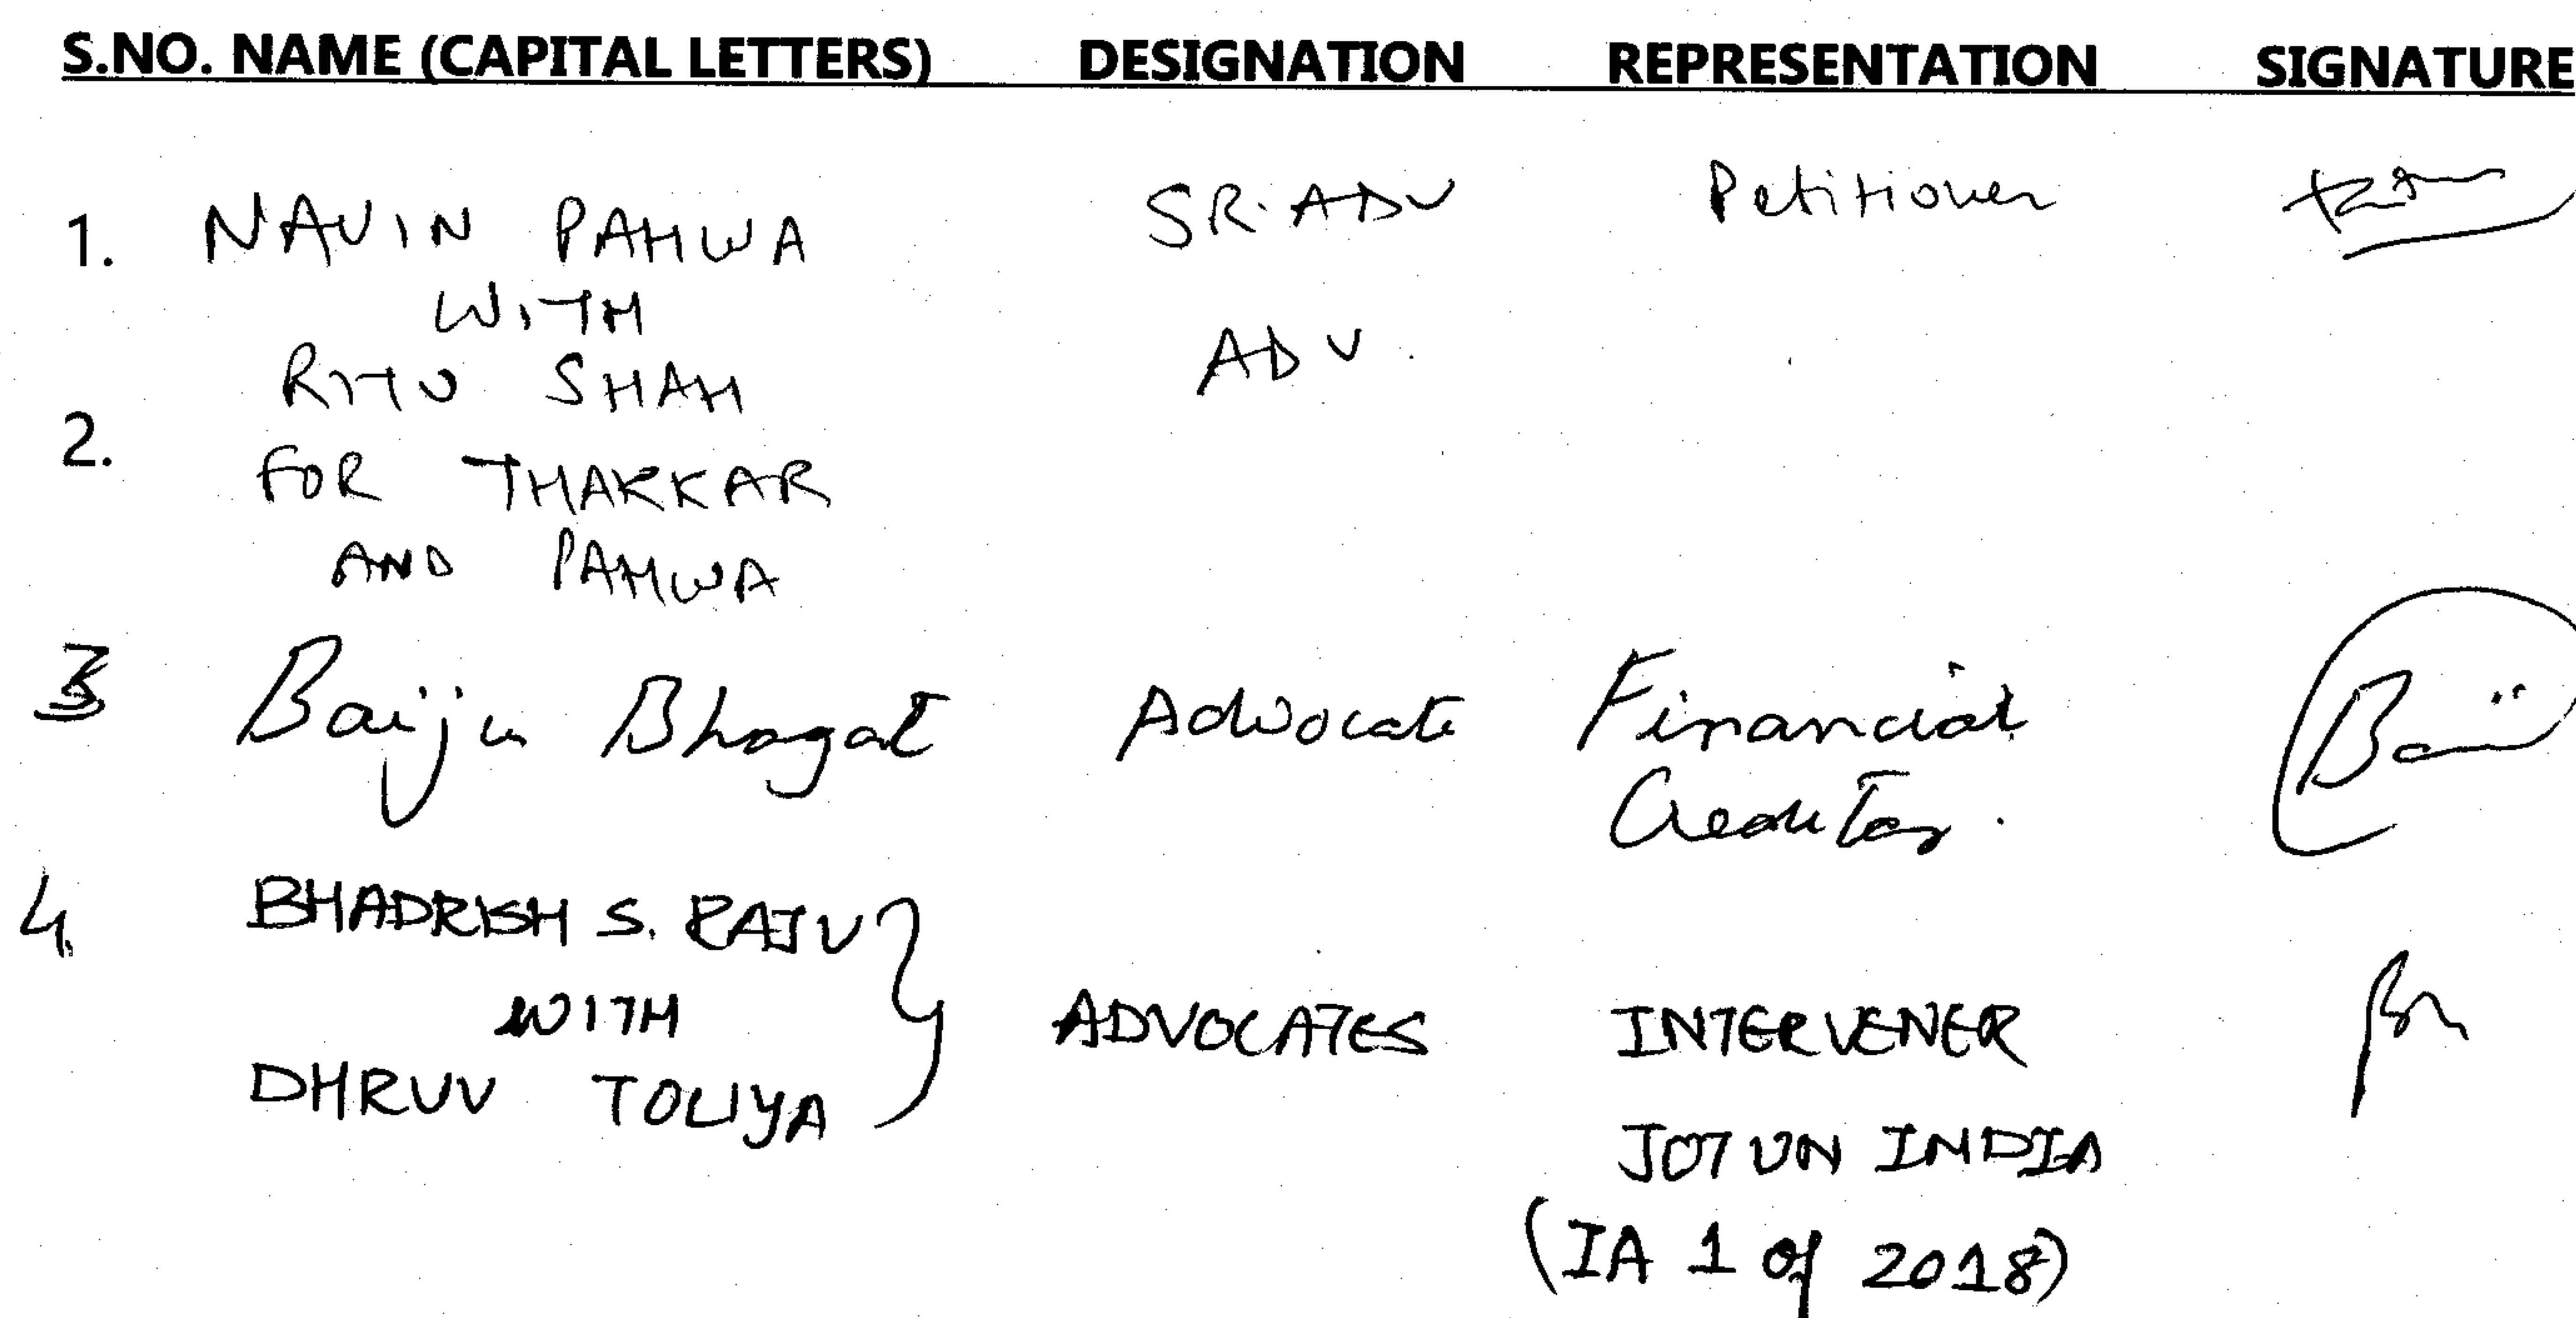 S.NO. NAME (CAPITAL LETTERS) DESIGNATION REPRESENTATION SIGNATURE
1. NAVIN PAHWA SR. ADV Petitioner
WITH
RITU SHAH ADV.
2.
FOR THAKKAR
AND PAHWA
3 Baiju Bhagat Advocate Financial
Creditor.
4. BHADRISH S. RAJU
WITH
ADVOCATES INTERVENER
DHRUV TOLIYA
JOTUN INDIA
(IA 1 of 2018)